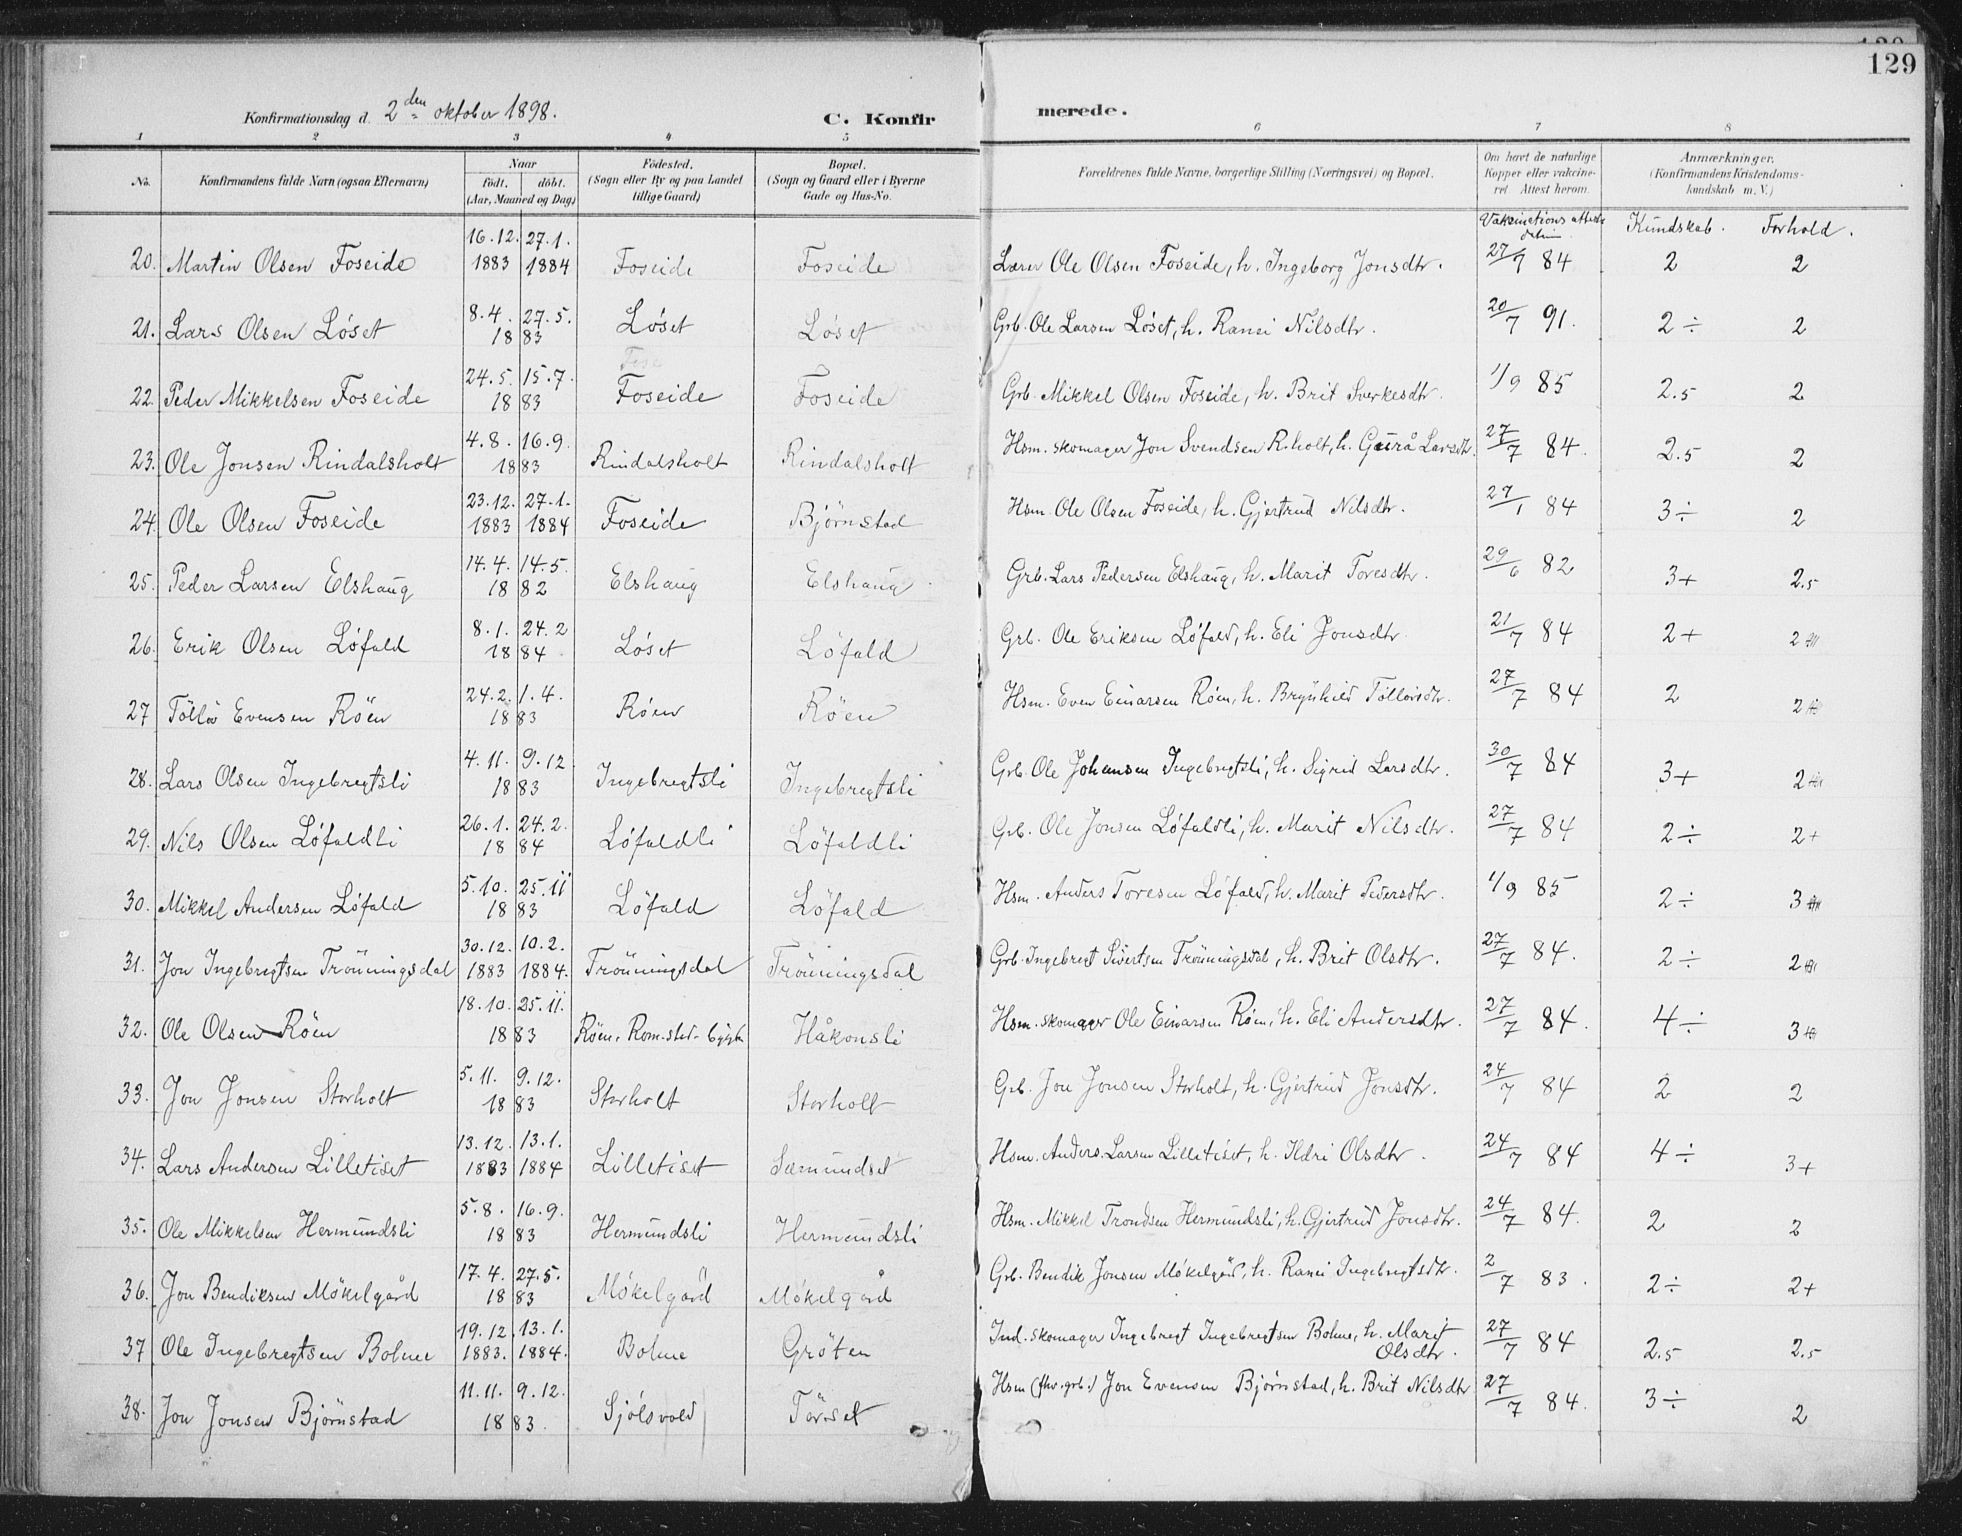 129
Konfirmationsdag d. 2den oktober 1898.
C. Konfirmerede.
1 2 3 4 5 6 7 8
No. Konfirmandens fulde Navn (ogsaa Efternavn) Naar födt. döbt. (Aar, Maaned og Dag) Födested. (Sogn eller By og paa Landet tillige Gaard) Bopæl. (Sogn og Gaard eller i Byerne Gade og Hus-No. Forældrenes fulde Navne, borgerlige Stilling (Næringsvei) og Bopæl. Om havt de naturlige Kopper eller vakcineret. Attest herom. Anmærkninger. (Konfirmandens Kristendomskundskab m. V.)
Kundskab. Forhold.
20. Martin Olsen Foseide 16.12. 1883 27.1. 1884 Foseide Foseide Lærer Ole Olsen Foseide, h. Ingeborg Jonsdtr. 27/7 84 2 2
21. Lars Olsen Løset 8.4. 27.5. 1883 Løset Løset Grb. Ole Larsen Løset, h. Ranei Nilsdtr. 20/7 91. 2÷ 2
22. Peder Mikkelsen Foseide 24.5. 15.7. 1883 Foseide Foseide Grb. Mikkel Olsen Foseide, h. Brit Sverkesdtr. 1/9 85 2.5 2
23. Ole Jonsen Rindalsholt 4.8. 16.9. 1883 Rindalsholt Rindalsholt Hsm. skomager Jon Svendsen R.holt, h. Gurå Larsdtr. 27/7 84. 2.5 2
24. Ole Olsen Foseide 23.12. 1883 27.1. 1884 Foseide Bjørnstad Hsm. Ole Olsen Foseide, h. Gjertrud Nilsdtr. 27/1 84 3÷ 2
25. Peder Larsen Elshaug 14.4. 14.5. 1882 Elshaug Elshaug Grb. Lars Pedersen Elshaug, h. Marit Toresdtr. 29/6 82 3+ 2.5
26. Erik Olsen Løfald 8.1. 24.2 1884 Løset Løfald Grb. Ole Eriksen Løfald, h. Eli Jonsdtr. 21/7 84 2+ 2
27 Töllöv Evensen Röen 24.2. 1.4. 1883 Røen Røen Hsm. Even Einarsen Røen, h. Brynhild Töllövsdtr. 27/7 84 2 2
28. Lars Olsen Ingebregtsli 4.11. 9.12. 1883 Ingebregtsli Ingebregtsli Grb. Ole Johansen Ingebregtsli, h. Sigrid Larsdtr. 30/7 84 3+ 2
29. Nils Olsen Løfaldli 26.1. 24.2. 1884 Løfaldli Løfaldli Grb. Ole Jonsen Løfaldli, h. Marit Nilsdtr. 27/7 84 2÷ 2+
30. Mikkel Andersen Løfald 5.10. 25.11 1883 Løfald Løfald Hsm. Anders Toresen Løfald, h. Marit Pedersdtr. 1/9 85 2÷ 3
31. Jon Ingebregtsen Trönningsdal 30.12. 1883 10.2. 1884. Trönningsdal Trönningsdal Grb. Ingebregt Sivertsen Trönningsdal, h. Brit Olsdtr. 27/7 84. 2÷ 2
32. Ole Olsen Röen 18.10. 25.11. 1883 Röen, Håkonsli Hsm. skomager Ole Einarsen Røen, h. Eli Andersdtr. 27/7 84. 4÷ 3
33. Jon Jonsen Storholt 5.11. 9.12. 1883 Storholt Storholt Grb. Jon Jonsen Storholt, h. Gjertrud Jonsdtr. 24/7 84 2 2
34. Lars Andersen Lilletiset 13.12. 1883 13.1. 1884 Lilletiset Sæmundset Hsm. Anders Larsen Lilletiset, h. Ildri Olsdtr. 24/7 84 4÷ 3+
35. Ole Mikkelsen Hermundsli 5.8. 16.9. 1883 Hermundsli Hermundsli Hsm. Mikkel Trondsen Hermundsli, h. Gjertrud Jonsdtr. 24/7 84. 2 2
36. Jon Bendiksen Mökelgård 17.4. 27.5. 1883 Møkelgård Møkelgård Grb. Bendik Jonsen Møkelgård, h. Ranei Ingebregtsdtr. 2/7 83. 2÷ 2+
37 Ole Ingebregtsen Bolme 19.12. 1883. 13.1. 1884. Bolme Grøten Ind. skomager Ingebregt Ingebregtsen Bolme, h. Marit Olsdtr. 27/7 84 2.5 2.5
38. Jon Jonsen Bjørnstad 11.11. 9.12. 1883. Sjölsvold Törset Hsm (fhv. grb.) Jon Evensen Bjørnstad, h. Brit Nilsdtr 27/7 84. 3÷ 2